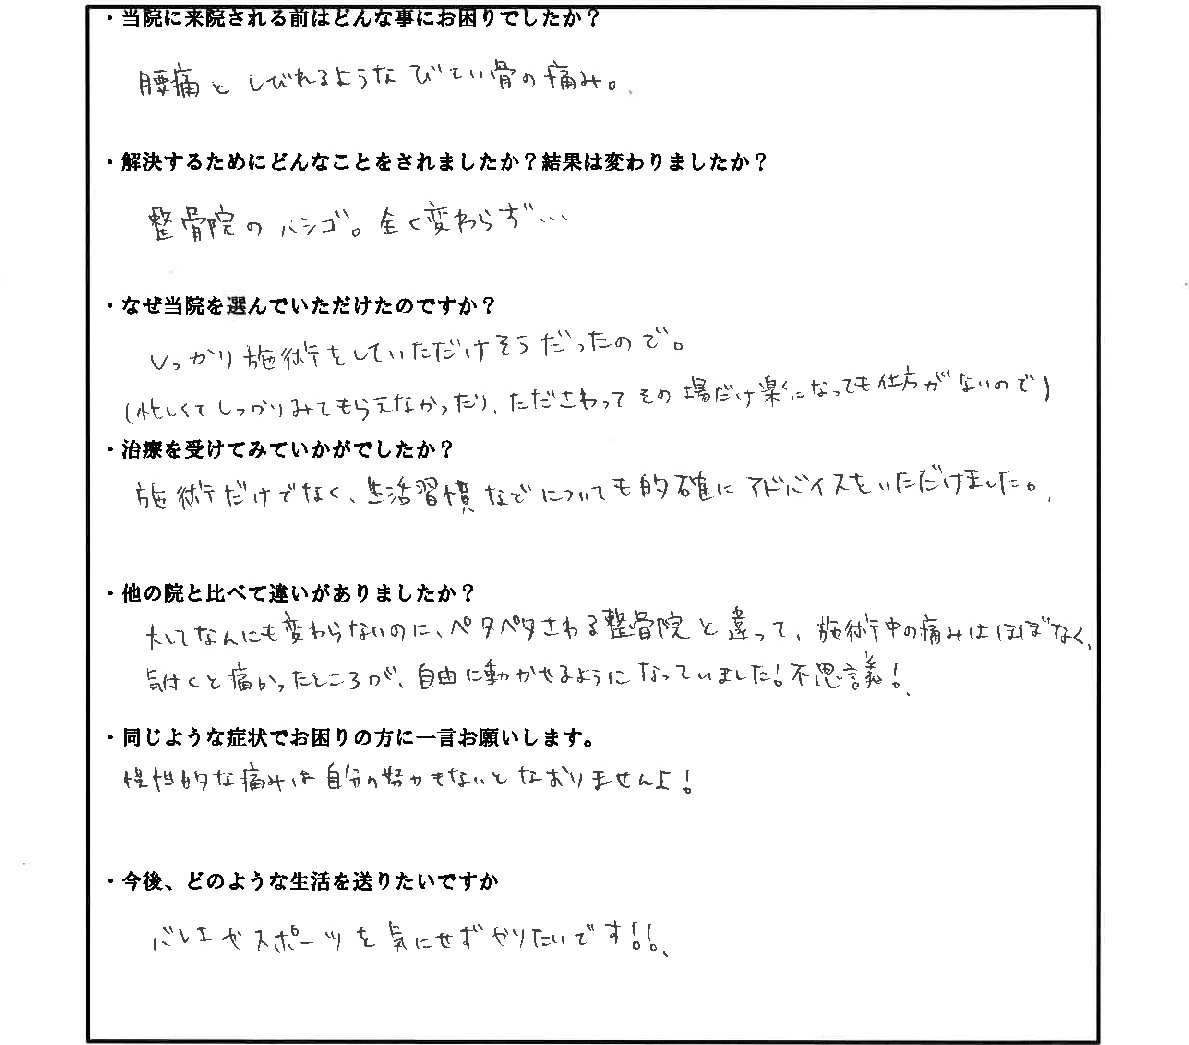 ・当院に来院される前はどんな事にお困りでしたか？
腰痛と しびれるような びてい骨の痛み。
・解決するためにどんなことをされましたか？結果は変わりましたか？
整骨院の ハシゴ。全く変わらず…
・なぜ当院を選んでいただけたのですか？
しっかり施術をしていただけそうだったので。
(忙しくてしっかりみてもらえなかったり、たださわってその場だけ楽になっても仕方がないので)
・治療を受けてみていかがでしたか？
施術だけでなく、生活習慣などについても的確にアドバイスをいただけました。
・他の院と比べて違いがありましたか？
大してなんにも変わらないのに、ペタペタさわる整骨院と違って、施術中の痛みはほぼなく、
気付くと痛かったところが、自由に動かせるようになっていました！不思議！
・同じような症状でお困りの方に一言お願いします。
慢性的な痛みは自分の努力もないとなおりませんよ！
・今後、どのような生活を送りたいですか
バレエやスポーツを気にせずやりたいです！！